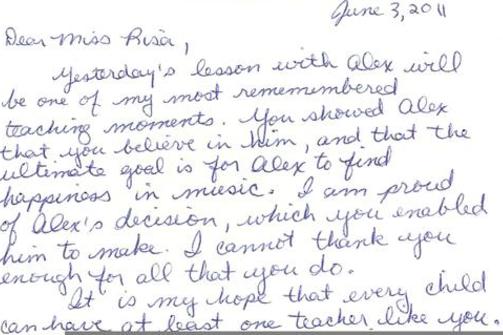 June 3, 2011
Dear Miss Risa,
Yesterday's lesson with Alex will
be one of my most remembered
teaching moments. You showed Alex
that you believe in him, and that the
ultimate goal is for Alex to find
happiness in music. I am proud
of Alex's decision, which you enabled
him to make. I cannot thank you
enough for all that you do.
It is my hope that every child
can have at least one teacher like you.